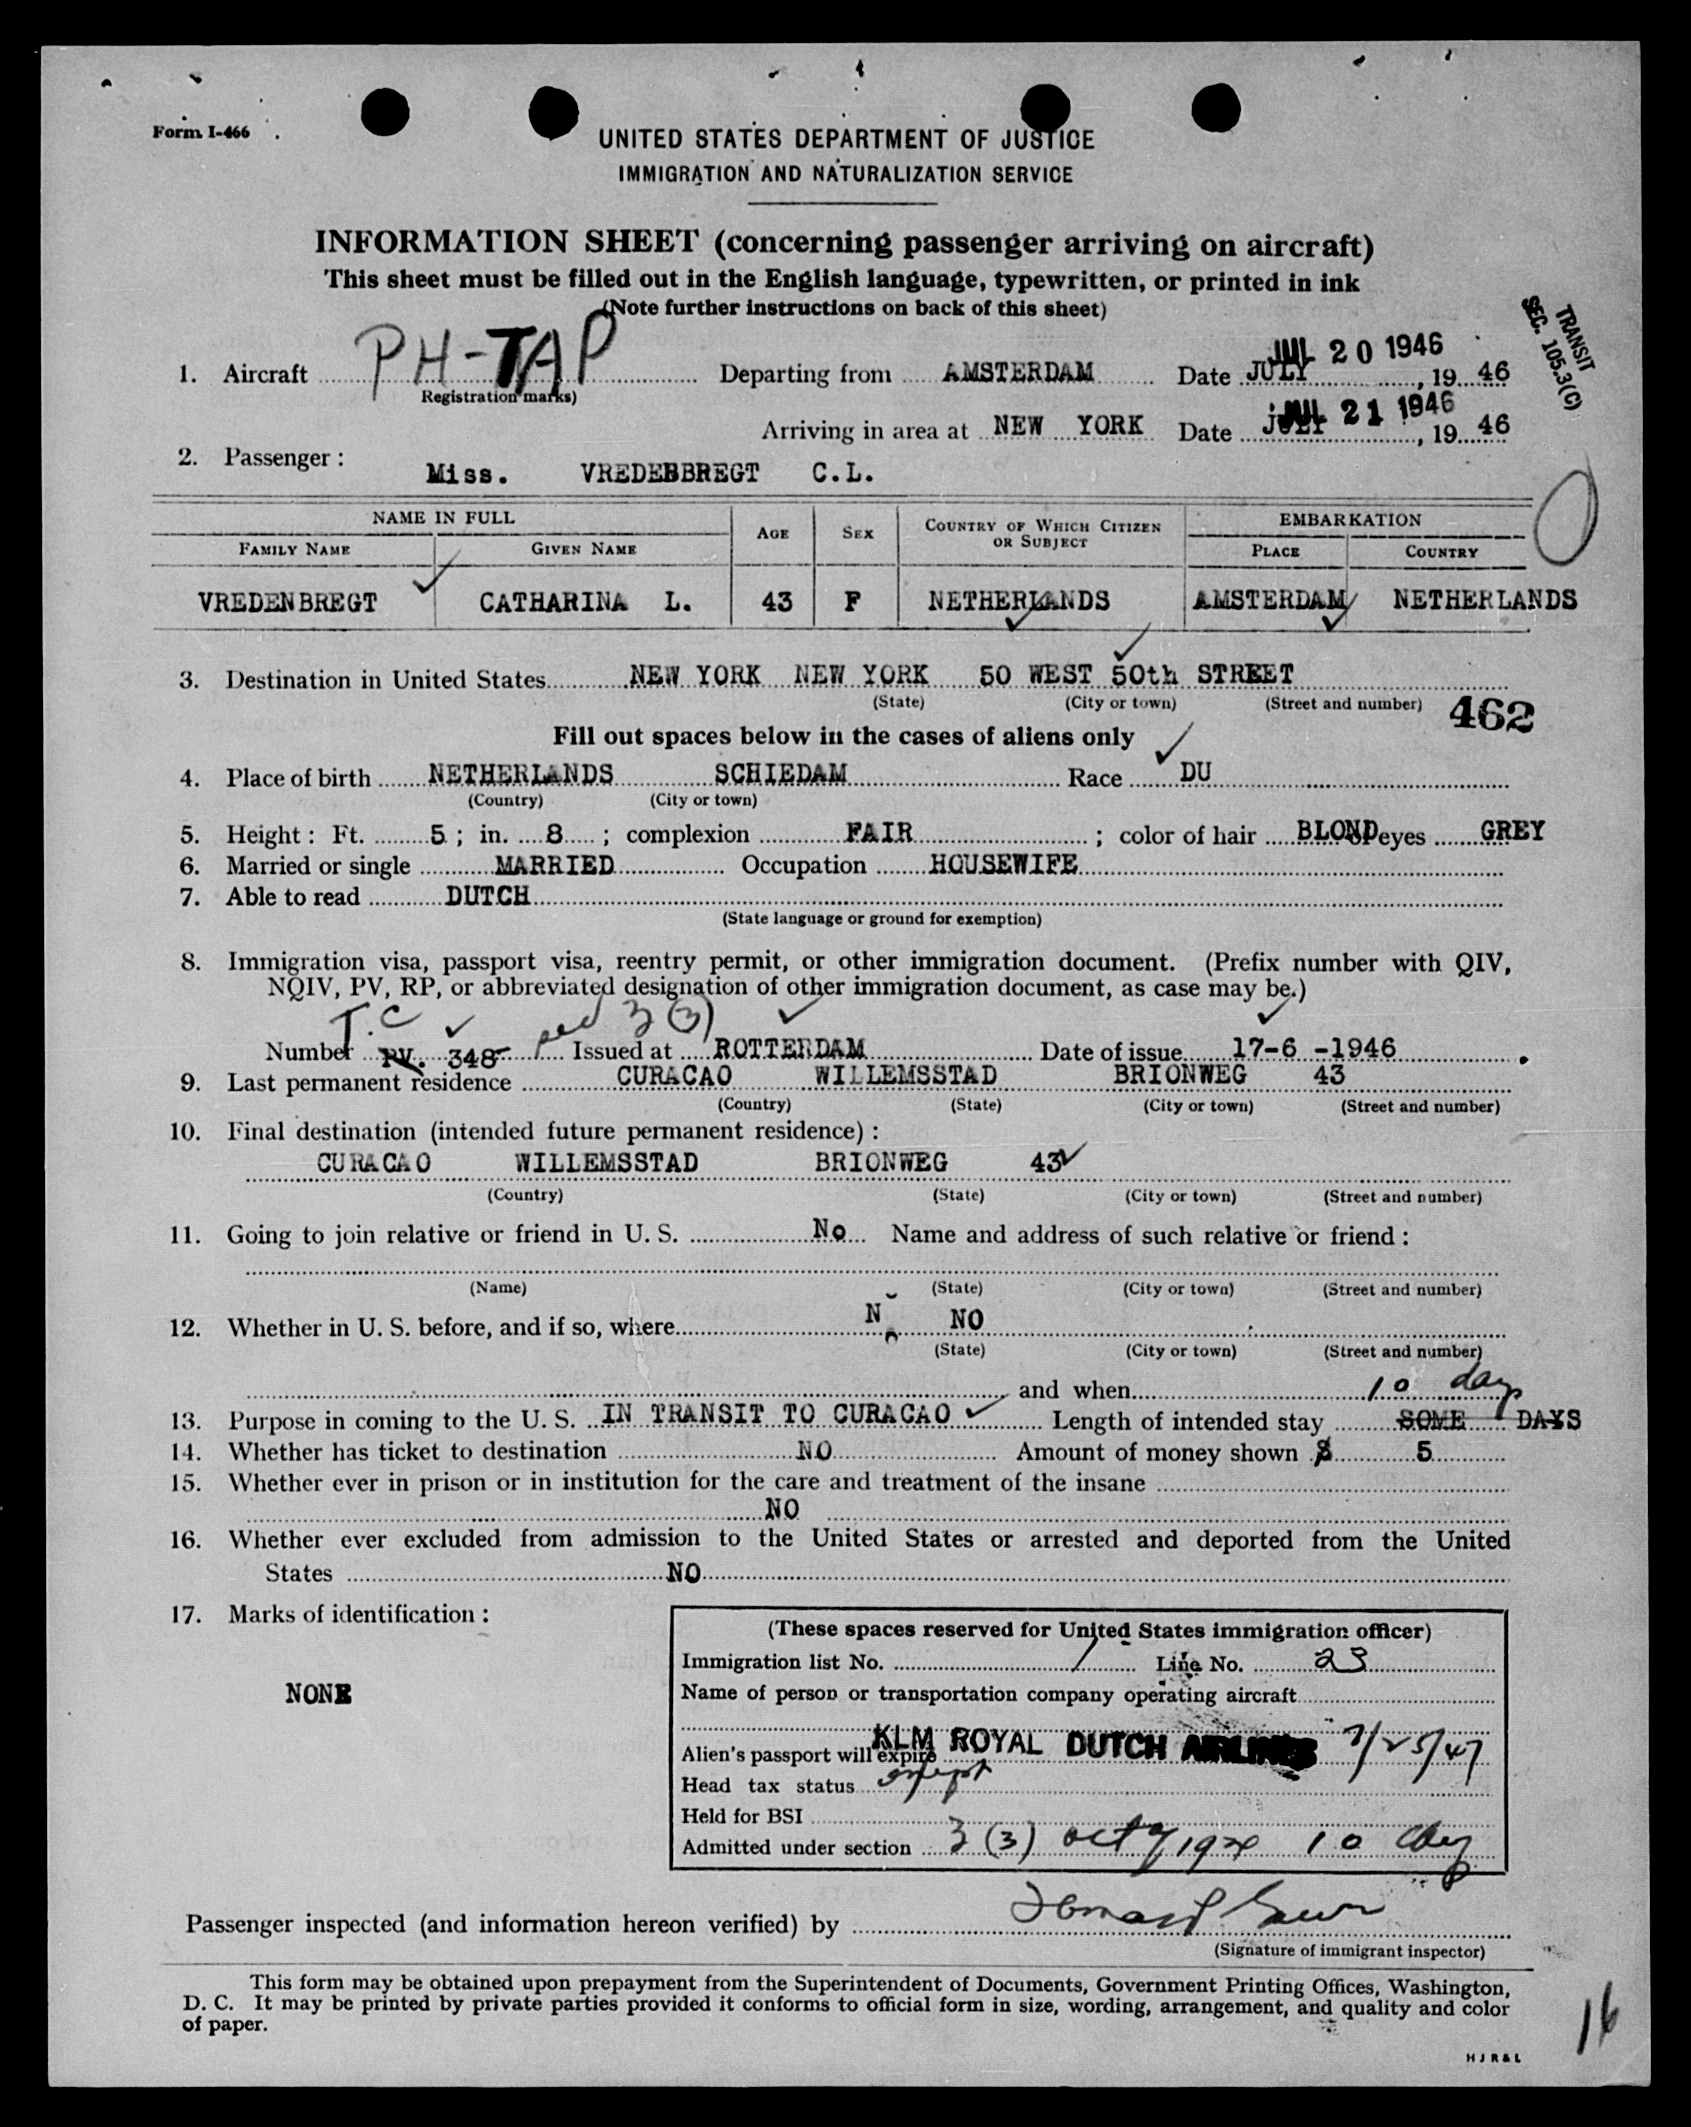 Form I-466
UNITED STATES DEPARTMENT OF JUSTICE
IMMIGRATION AND NATURALIZATION SERVICE
INFORMATION SHEET (concerning passenger arriving on aircraft)
This sheet must be filled out in the English language, typewritten, or printed in ink
(Note further instructions on back of this sheet)
TRANSIT
SEC. 105.3(C)
JUL 20 1946
1. Aircraft PH-TAP Departing from AMSTERDAM Date JULY, 1946
(Registration marks)
JUL 21 1946
Arriving in area at NEW YORK Date JULY, 1946
2. Passenger:
Miss. VREDEBBREGT C.L.
NAME IN FULL AGE SEX COUNTRY OF WHICH CITIZEN OR SUBJECT EMBARKATION
FAMILY NAME GIVEN NAME PLACE COUNTRY
VREDENBREGT CATHARINA L. 43 F NETHERLANDS AMSTERDAM NETHERLANDS
3. Destination in United States NEW YORK NEW YORK 50 WEST 50th STREET
(State) (City or town) (Street and number) 462
Fill out spaces below in the cases of aliens only
4. Place of birth NETHERLANDS SCHIEDAM Race DU
(Country) (City or town)
5. Height: Ft. 5; in. 8; complexion FAIR; color of hair BLOND eyes GREY
6. Married or single MARRIED Occupation HOUSEWIFE
7. Able to read DUTCH
(State language or ground for exemption)
8. Immigration visa, passport visa, reentry permit, or other immigration document. (Prefix number with QIV,
NQIV, PV, RP, or abbreviated designation of other immigration document, as case may be.)
T.C sec 3(3)
Number PV. 348 Issued at ROTTERDAM Date of issue 17-6 -1946
9. Last permanent residence CURACAO WILLEMSSTAD BRIONWEG 43
(Country) (State) (City or town) (Street and number)
10. Final destination (intended future permanent residence):
CURACAO WILLEMSSTAD BRIONWEG 43
(Country) (State) (City or town) (Street and number)
11. Going to join relative or friend in U. S. No Name and address of such relative or friend:
(Name) (State) (City or town) (Street and number)
12. Whether in U. S. before, and if so, where N NO
(State) (City or town) (Street and number)
and when 10 days
13. Purpose in coming to the U. S. IN TRANSIT TO CURACAO Length of intended stay SOME DAYS
14. Whether has ticket to destination NO Amount of money shown $ 5
15. Whether ever in prison or in institution for the care and treatment of the insane
NO
16. Whether ever excluded from admission to the United States or arrested and deported from the United
States NO
17. Marks of identification:
NONE
(These spaces reserved for United States immigration officer)
Immigration list No. 1 Line No. 23
Name of person or transportation company operating aircraft
KLM ROYAL DUTCH AIRLINES
Alien's passport will expire 7/25/47
Head tax status exempt
Held for BSI
Admitted under section 3(3) act of 1924 10 days
Passenger inspected (and information hereon verified) by
(Signature of immigrant inspector)
This form may be obtained upon prepayment from the Superintendent of Documents, Government Printing Offices, Washington,
D. C. It may be printed by private parties provided it conforms to official form in size, wording, arrangement, and quality and color
of paper.
16
H J R & L